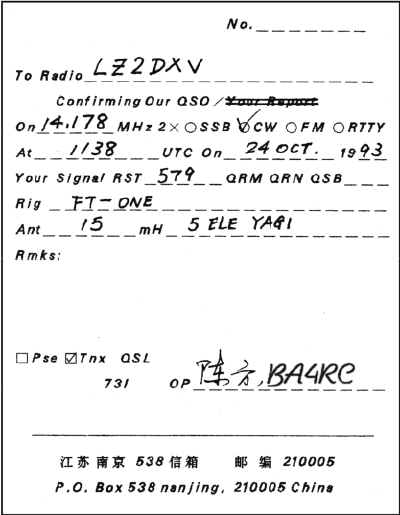 No.
To Radio LZ2DXV
Confirming Our QSO / Your Report
On 14.178 MHz 2× ○SSB ☑CW ○FM ○RTTY
At 1138 UTC On 24 OCT. 1993
Your Signal RST 579 QRM QRN QSB
Rig FT-ONE
Ant 15 mH 5 ELE YAGI
Rmks:
□Pse ☑Tnx QSL
731 OP 陈方, BA4RC
江苏南京 538 信箱 邮编 210005
P.O. Box 538 nanjing, 210005 China